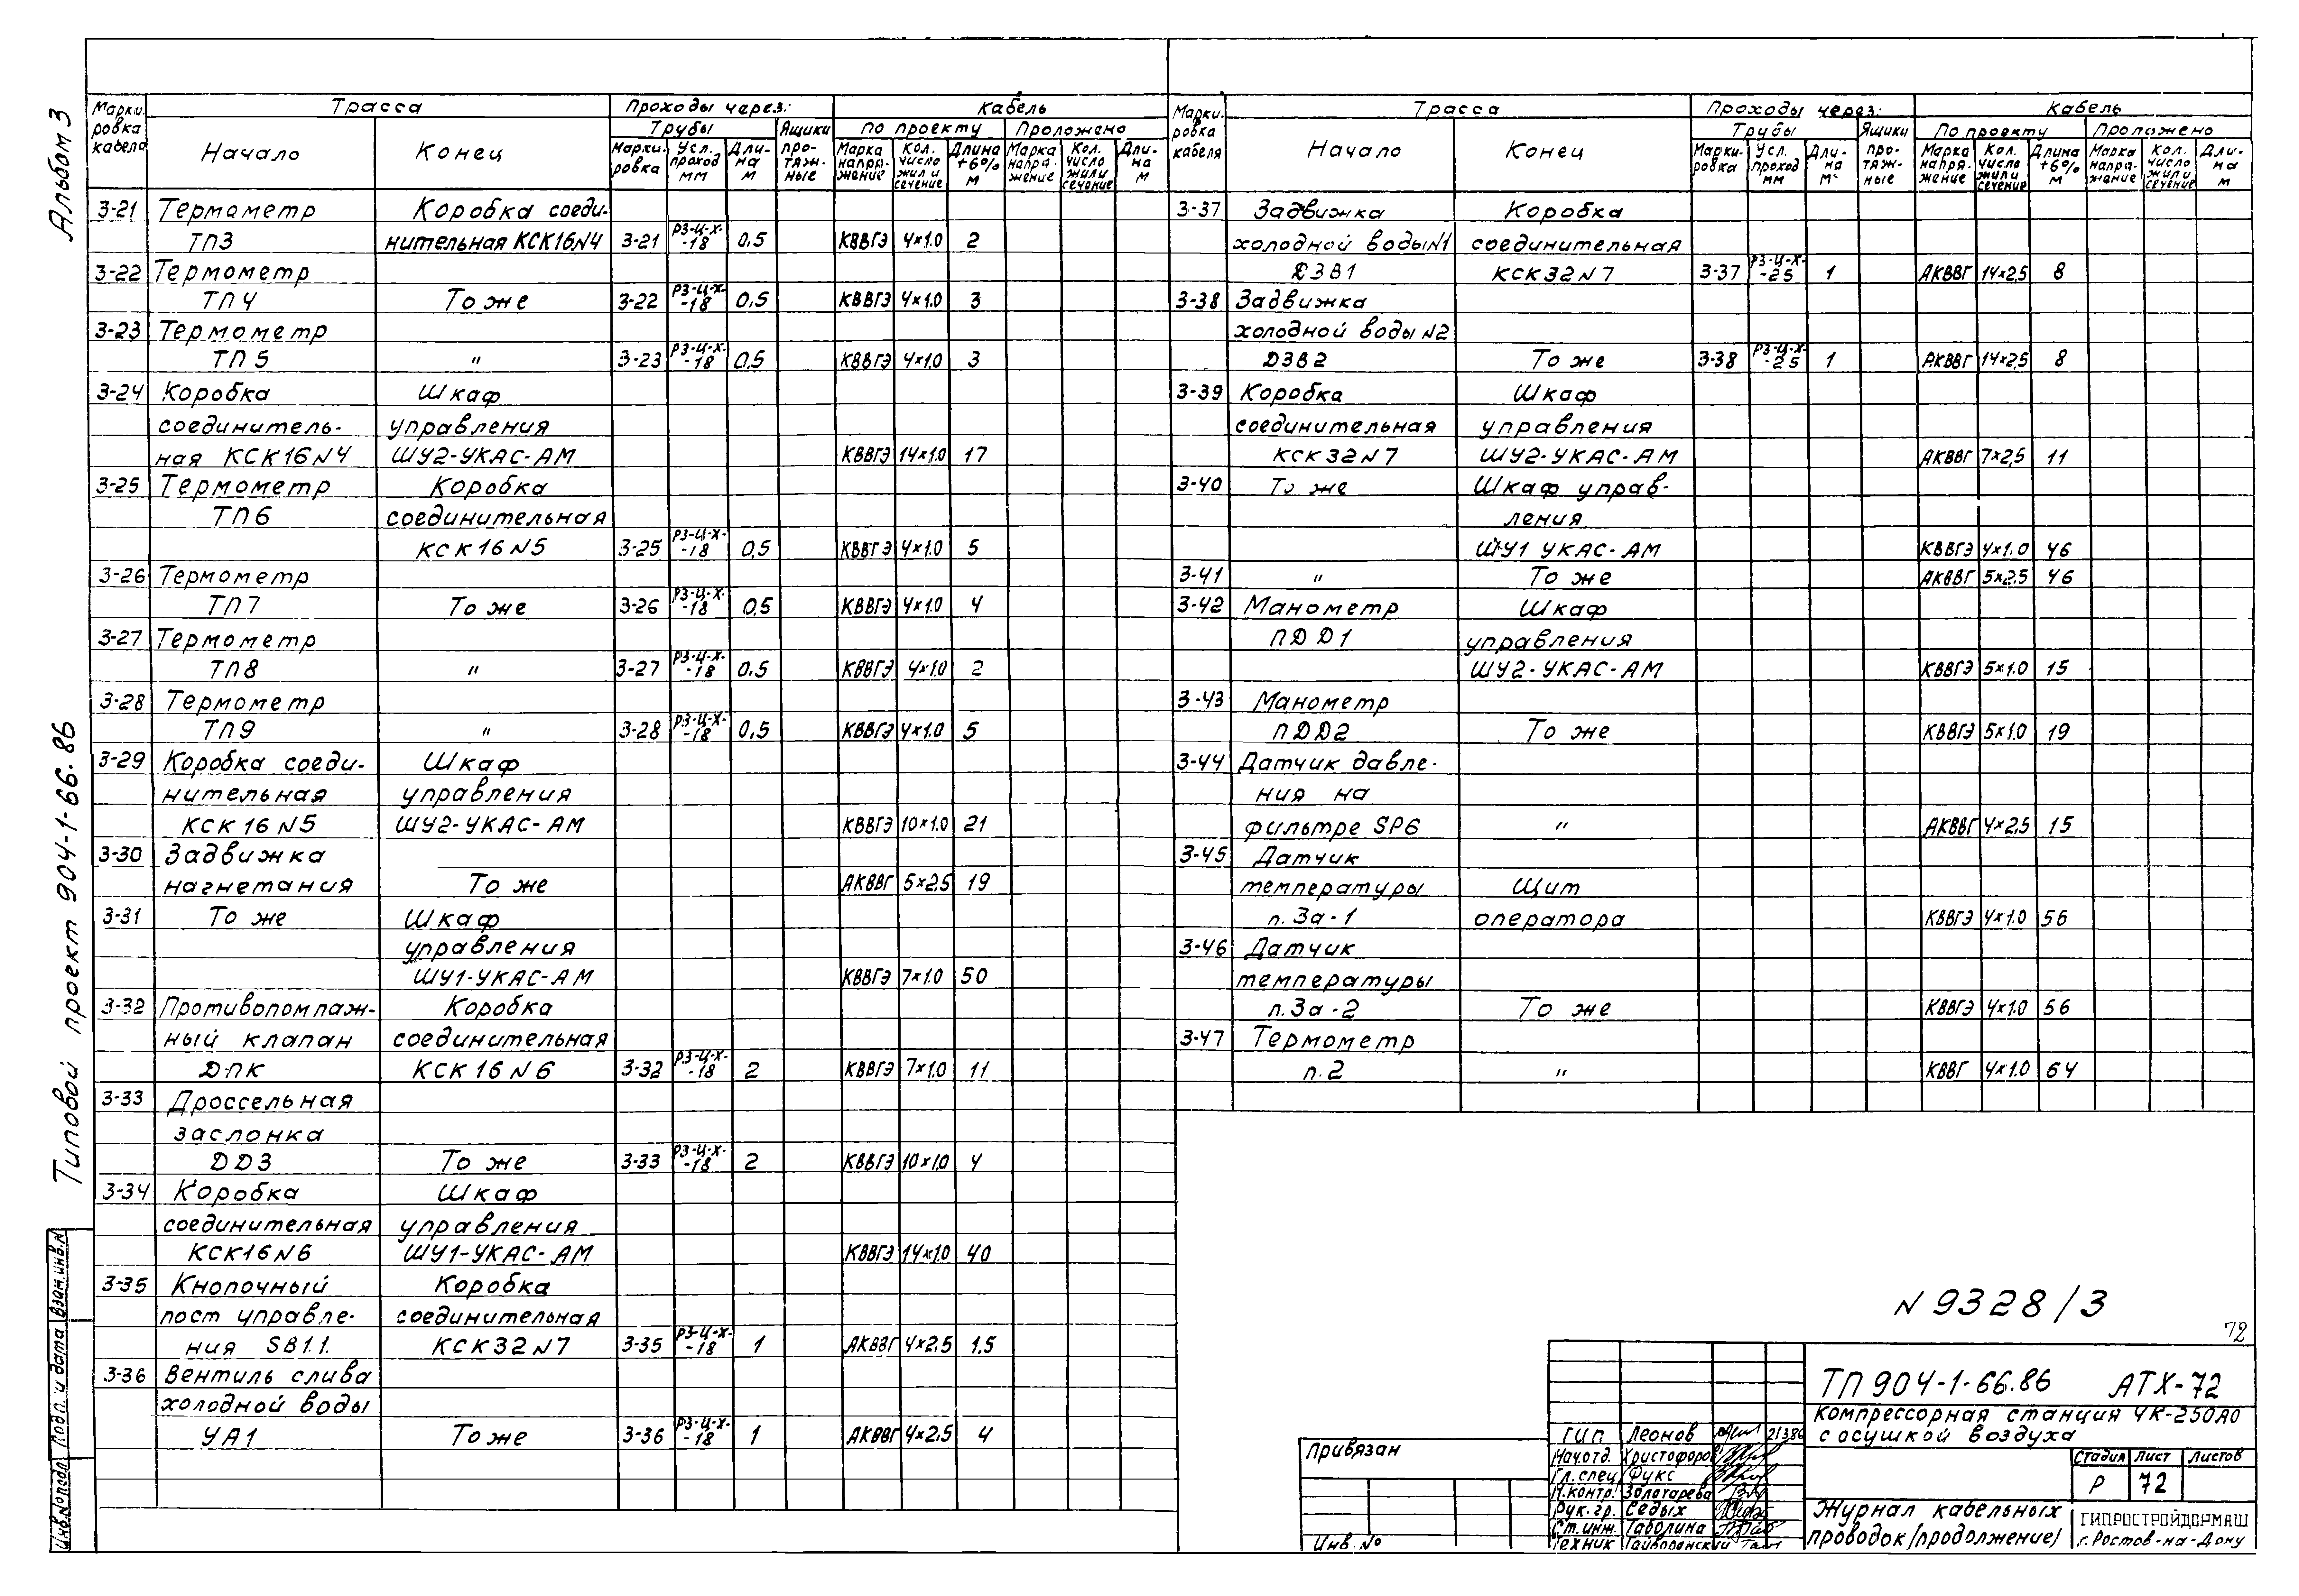 Альбом 3
Типовой проект 904-1-66.86
Взам.инв.№
Подп. и дата
Инв.№подл.
Марки- ровка кабеля | Трасса | Проходы через: | Кабель
Начало | Конец | Трубы | Ящики про- тяж- ные | По проекту | Проложено
Марки- ровка | Усл. проход мм | Дли- на м | Марка напря- жение | Кол. число жил и сечение | Длина +6% м | Марка напря- жение | Кол. число жил и сечение | Дли- на м
3-21 Термометр Коробка соеди-
ТП3 нительная КСК16№4 3-21 РЗ-Ц-Х- -18 0,5 КВВГЭ 4×1.0 2
3-22 Термометр
ТП4 То же 3-22 РЗ-Ц-Х- -18 0,5 КВВГЭ 4×1.0 3
3-23 Термометр
ТП5 " 3-23 РЗ-Ц-Х- -18 0,5 КВВГЭ 4×1.0 3
3-24 Коробка Шкаф
соединитель- управления
ная КСК16№4 ШУ2-УКАС-АМ КВВГЭ 14×1.0 17
3-25 Термометр Коробка
ТП6 соединительная
КСК16№5 3-25 РЗ-Ц-Х- -18 0,5 КВВГЭ 4×1.0 5
3-26 Термометр
ТП7 То же 3-26 РЗ-Ц-Х- -18 0,5 КВВГЭ 4×1.0 4
3-27 Термометр
ТП8 " 3-27 РЗ-Ц-Х- -18 0.5 КВВГЭ 4×1.0 2
3-28 Термометр
ТП9 " 3-28 РЗ-Ц-Х- -18 0,5 КВВГЭ 4×1.0 5
3-29 Коробка соеди- Шкаф
нительная управления
КСК16№5 ШУ2-УКАС-АМ КВВГЭ 10×1.0 21
3-30 Задвижка
нагнетания То же АКВВГ 5×2,5 19
3-31 То же Шкаф
управления
ШУ1-УКАС-АМ КВВГЭ 7×1.0 50
3-32 Противопомпаж- Коробка
ный клапан соединительная
ДПК КСК16№6 3-32 РЗ-Ц-Х- -18 2 КВВГЭ 7×1.0 11
3-33 Дроссельная
заслонка
ДДЗ То же 3-33 РЗ-Ц-Х- -18 2 КВВГЭ 10×1.0 4
3-34 Коробка Шкаф
соединительная управления
КСК16№6 ШУ1-УКАС-АМ КВВГЭ 14×1.0 40
3-35 Кнопочный Коробка
пост управле- соединительная
ния SB1.1. КСК32№7 3-35 РЗ-Ц-Х- -18 1 АКВВГ 4×2,5 1,5
3-36 Вентиль слива
холодной воды
УА1 То же 3-36 РЗ-Ц-Х- -18 1 АКВВГ 4×2,5 4
Марки- ровка кабеля | Трасса | Проходы через: | Кабель
Начало | Конец | Трубы | Ящики про- тяж- ные | По проекту | Проложено
Марки- ровка | Усл. проход мм | Дли- на м | Марка напря- жение | Кол. число жил и сечение | Длина +6% м | Марка напря- жение | Кол. число жил и сечение | Дли- на м
3-37 Задвижка Коробка
холодной воды№1 соединительная
ДЗВ1 КСК32№7 3-37 РЗ-Ц-Х- -25 1 АКВВГ 14×2,5 8
3-38 Задвижка
холодной воды №2
ДЗВ2 То же 3-38 РЗ-Ц-Х- -25 1 АКВВГ 14×2,5 8
3-39 Коробка Шкаф
соединительная управления
КСК32№7 ШУ2-УКАС-АМ АКВВГ 7×2,5 11
3-40 То же Шкаф управ-
ления
ШУ1 УКАС-АМ КВВГЭ 4×1.0 46
3-41 " То же АКВВГ 5×2.5 46
3-42 Манометр Шкаф
ПДД1 управления
ШУ2-УКАС-АМ КВВГЭ 5×1.0 15
3-43 Манометр
ПДД2 То же КВВГЭ 5×1.0 19
3-44 Датчик давле-
ния на
фильтре SP6 " АКВВГ 4×2,5 15
3-45 Датчик
температуры Щит
п. 3а-1 оператора КВВГЭ 4×1.0 56
3-46 Датчик
температуры
п. 3а-2 То же КВВГЭ 4×1.0 56
3-47 Термометр
п.2 " КВВГ 4×1.0 64
№ 9328/3
72
ТП 904-1-66.86 АТХ-72
Компрессорная станция ЧК-250А0
с осушкой воздуха
Стадия Лист Листов
Р 72
Журнал кабельных
проводок (продолжение)
ГИПРОСТРОЙДОРМАШ
г. Ростов-на-Дону
ГИП Леонов 21386
Нач.отд. Христофоров
Гл. спец Фукс
Н.контр. Золотарева
Рук.гр. Седых
Ст.инж. Таболина
Техник
Привязан
Инв.№